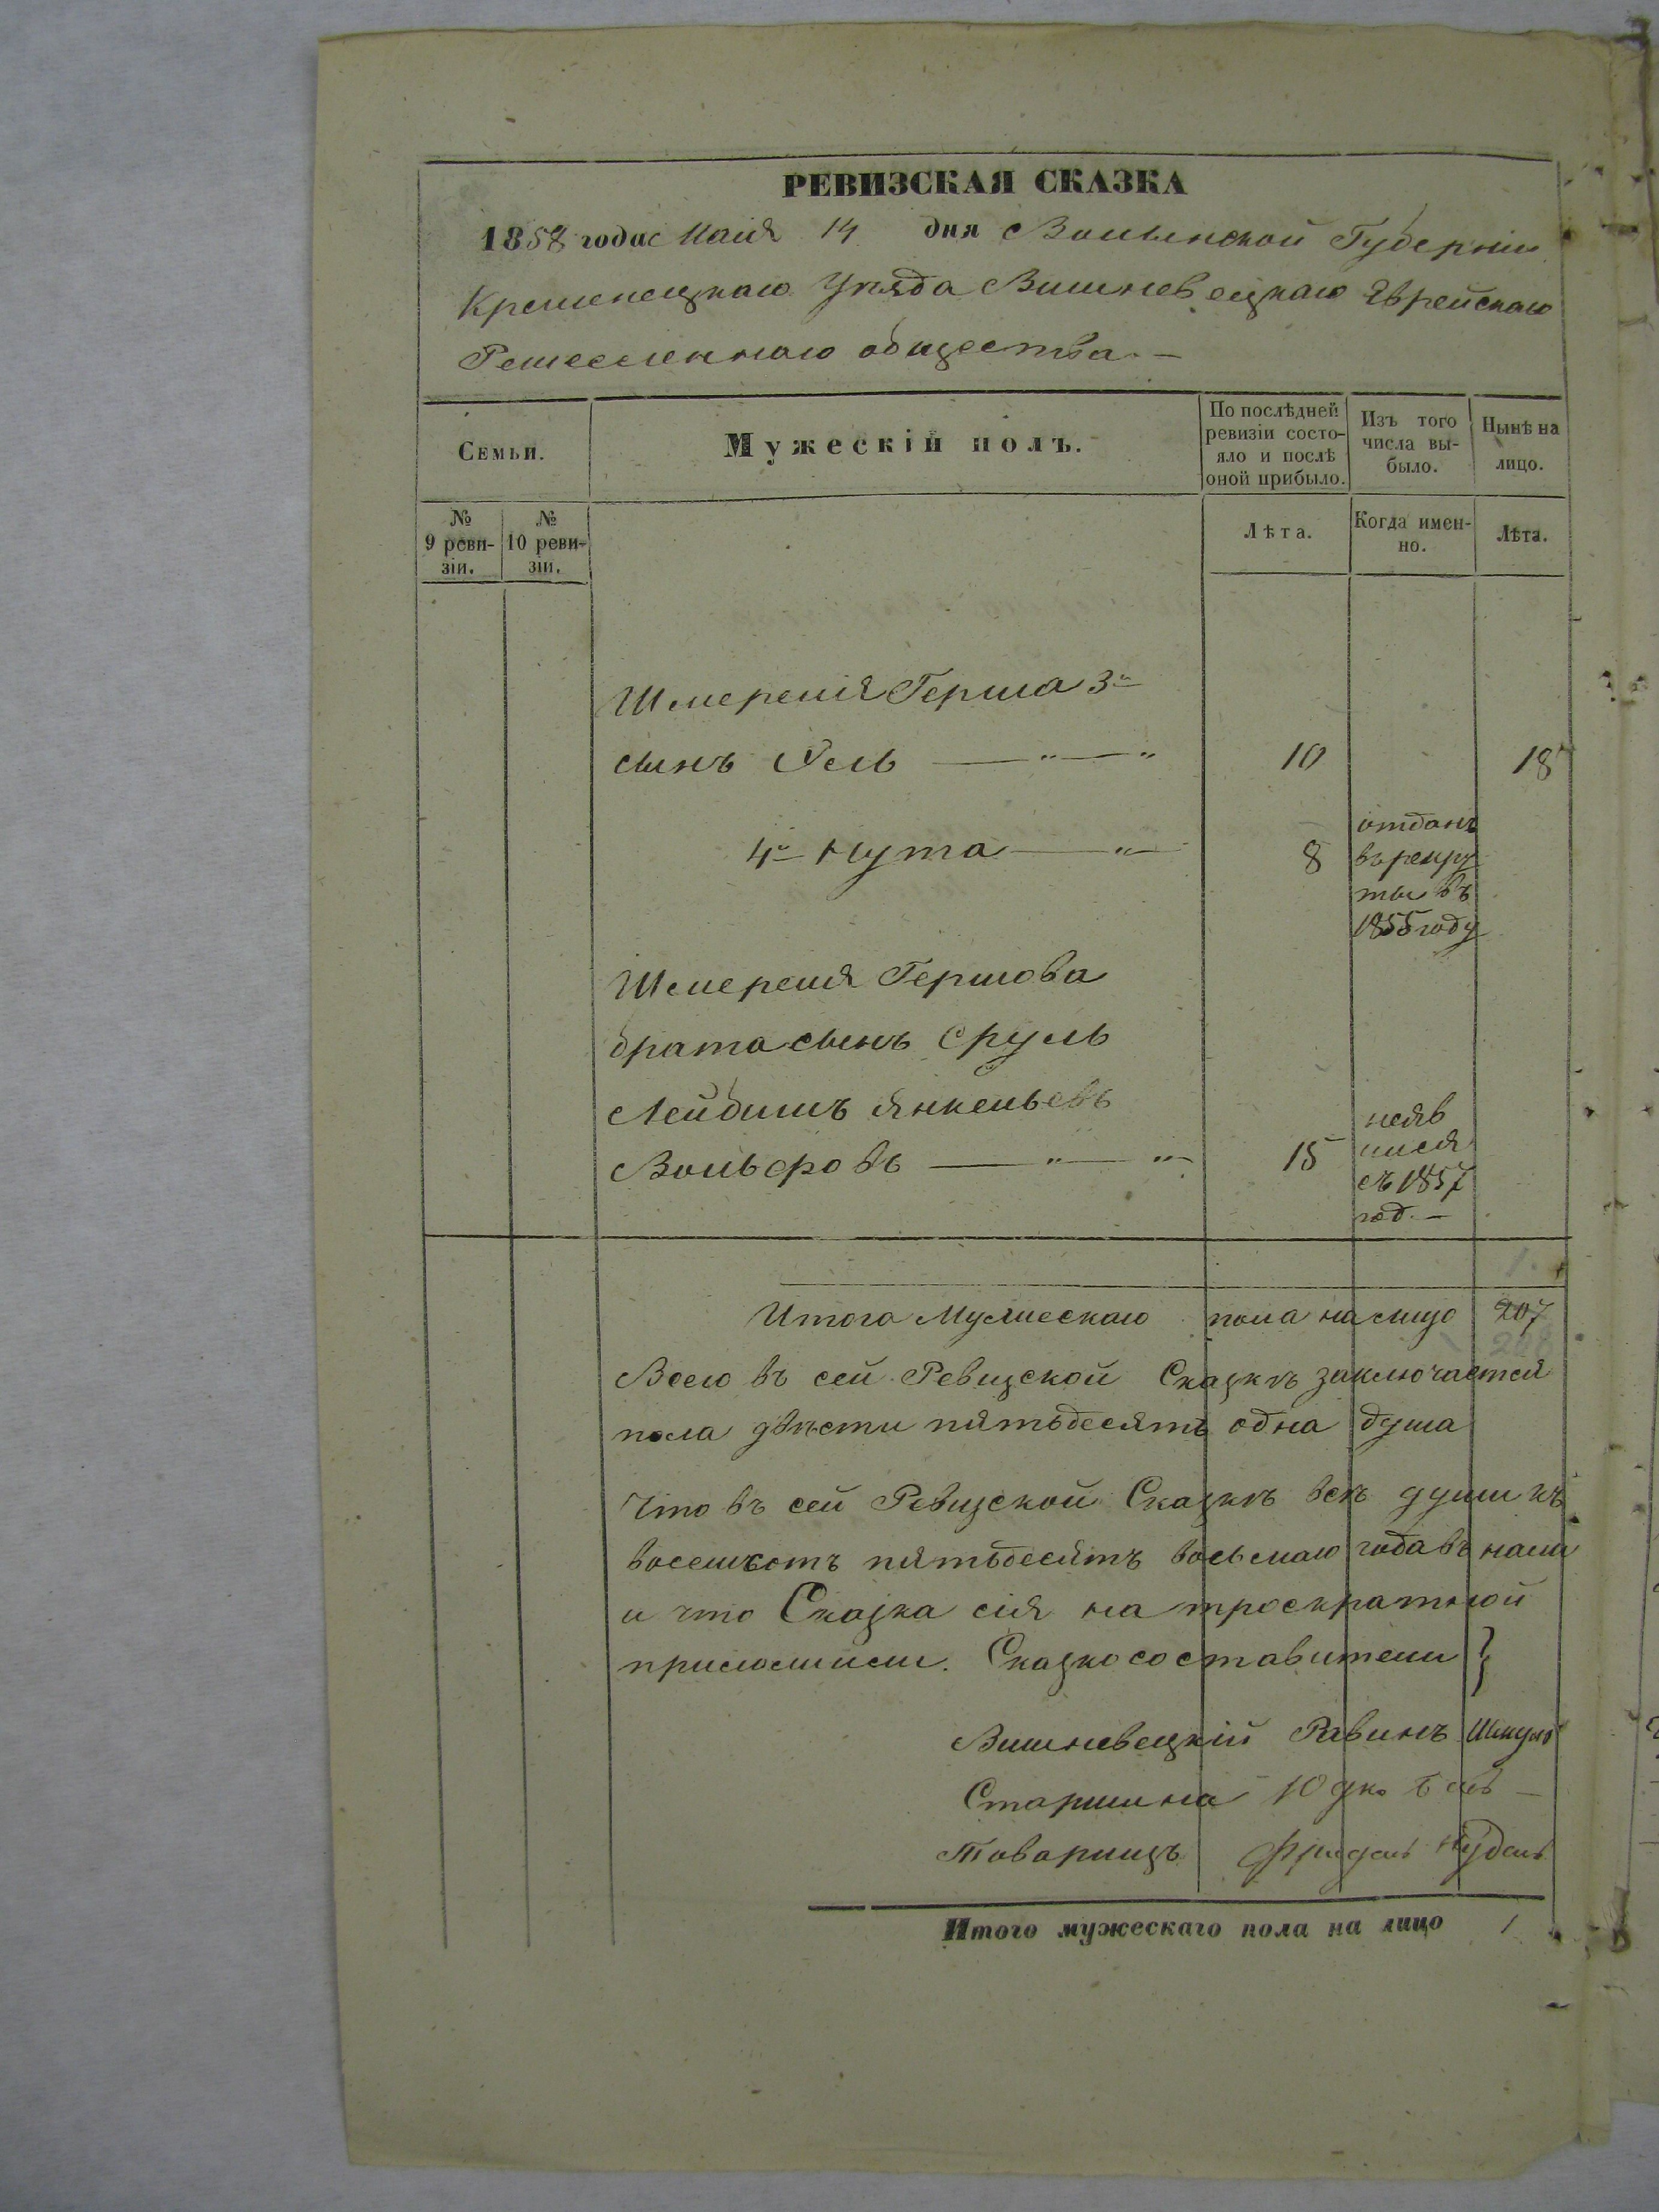 РЕВИЗСКАЯ СКАЗКА
1858 года Маія 14 дня Волынской Губерніи
Кременецкаго Уѣзда Вишневецкаго Еврейскаго
Ремесленнаго общества.—
Семьи.
Мужескій полъ.
По послѣдней ревизіи состояло и послѣ оной прибыло.
Изъ того числа выбыло.
Нынѣ на лицо.
№ 9 ревизіи.
№ 10 ревизіи.
Лѣта.
Когда именно.
Лѣта.
Шмереля Герша 3й
сынъ 10 18
4й Нута 8
отданъ
въ рекру
ты въ
1855 году
Шмереля Гершова
брата сынъ Сруль
Лейбишъ Янкельевъ
Вольфовъ 15
неяв
лися
съ 1857
год.—
1.
Итого Мужескаго пола на лицо 207
208
Всего въ сей Ревизской Сказкѣ заключается
пола двѣсти пятьдесятъ одна душа
Что въ сей Ревизской Сказкѣ всѣ души къ
восемьсотъ пятьдесятъ восьмаго года въ нали
и что Сказка сія на троекратной
приложили. Сказкосоставители }
Вишневецкій Равинъ Шмуль
Старшина
Товарищъ
Итого мужескаго пола на лицо 1